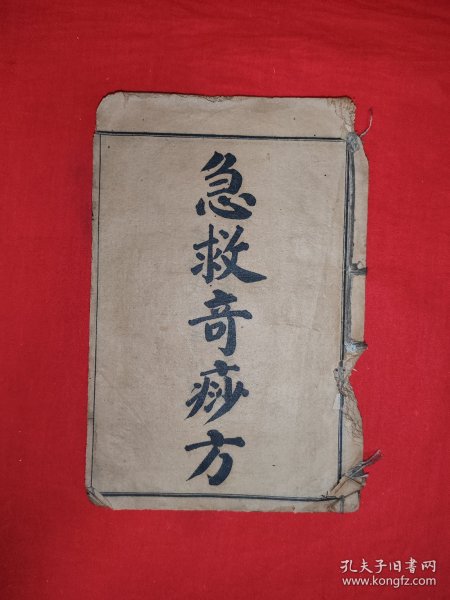 急救奇痧方
孔夫子旧书网
www.kongfz.com